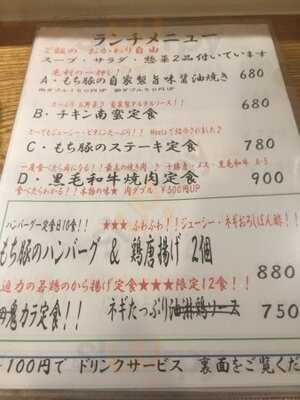 ランチメニュー
ご飯のおかわり自由
スープ・サラダ・惣菜2品付いています
A・もち豚の自家製旨味醤油焼き 680
B・チキン南蛮定食 680
C・もち豚のステーキ定食 780
D・黒毛和牛焼肉定食 900
食べたらわかる!!本物の味★ 肉ダブル ¥500円UP
ハンバーグ一定食日10食!! ★★★ ふわふわ!!ジューシー・ネギおろしぽん酢!!
もち豚のハンバーグ & 鶏唐揚げ 2個 880
迫力の若鶏のから揚げ定食★★★限定12食!!
カラ定食!! ネギたっぷり油淋鶏ソース 750
+100円で ドリンクサービス 裏面をご覧くだ